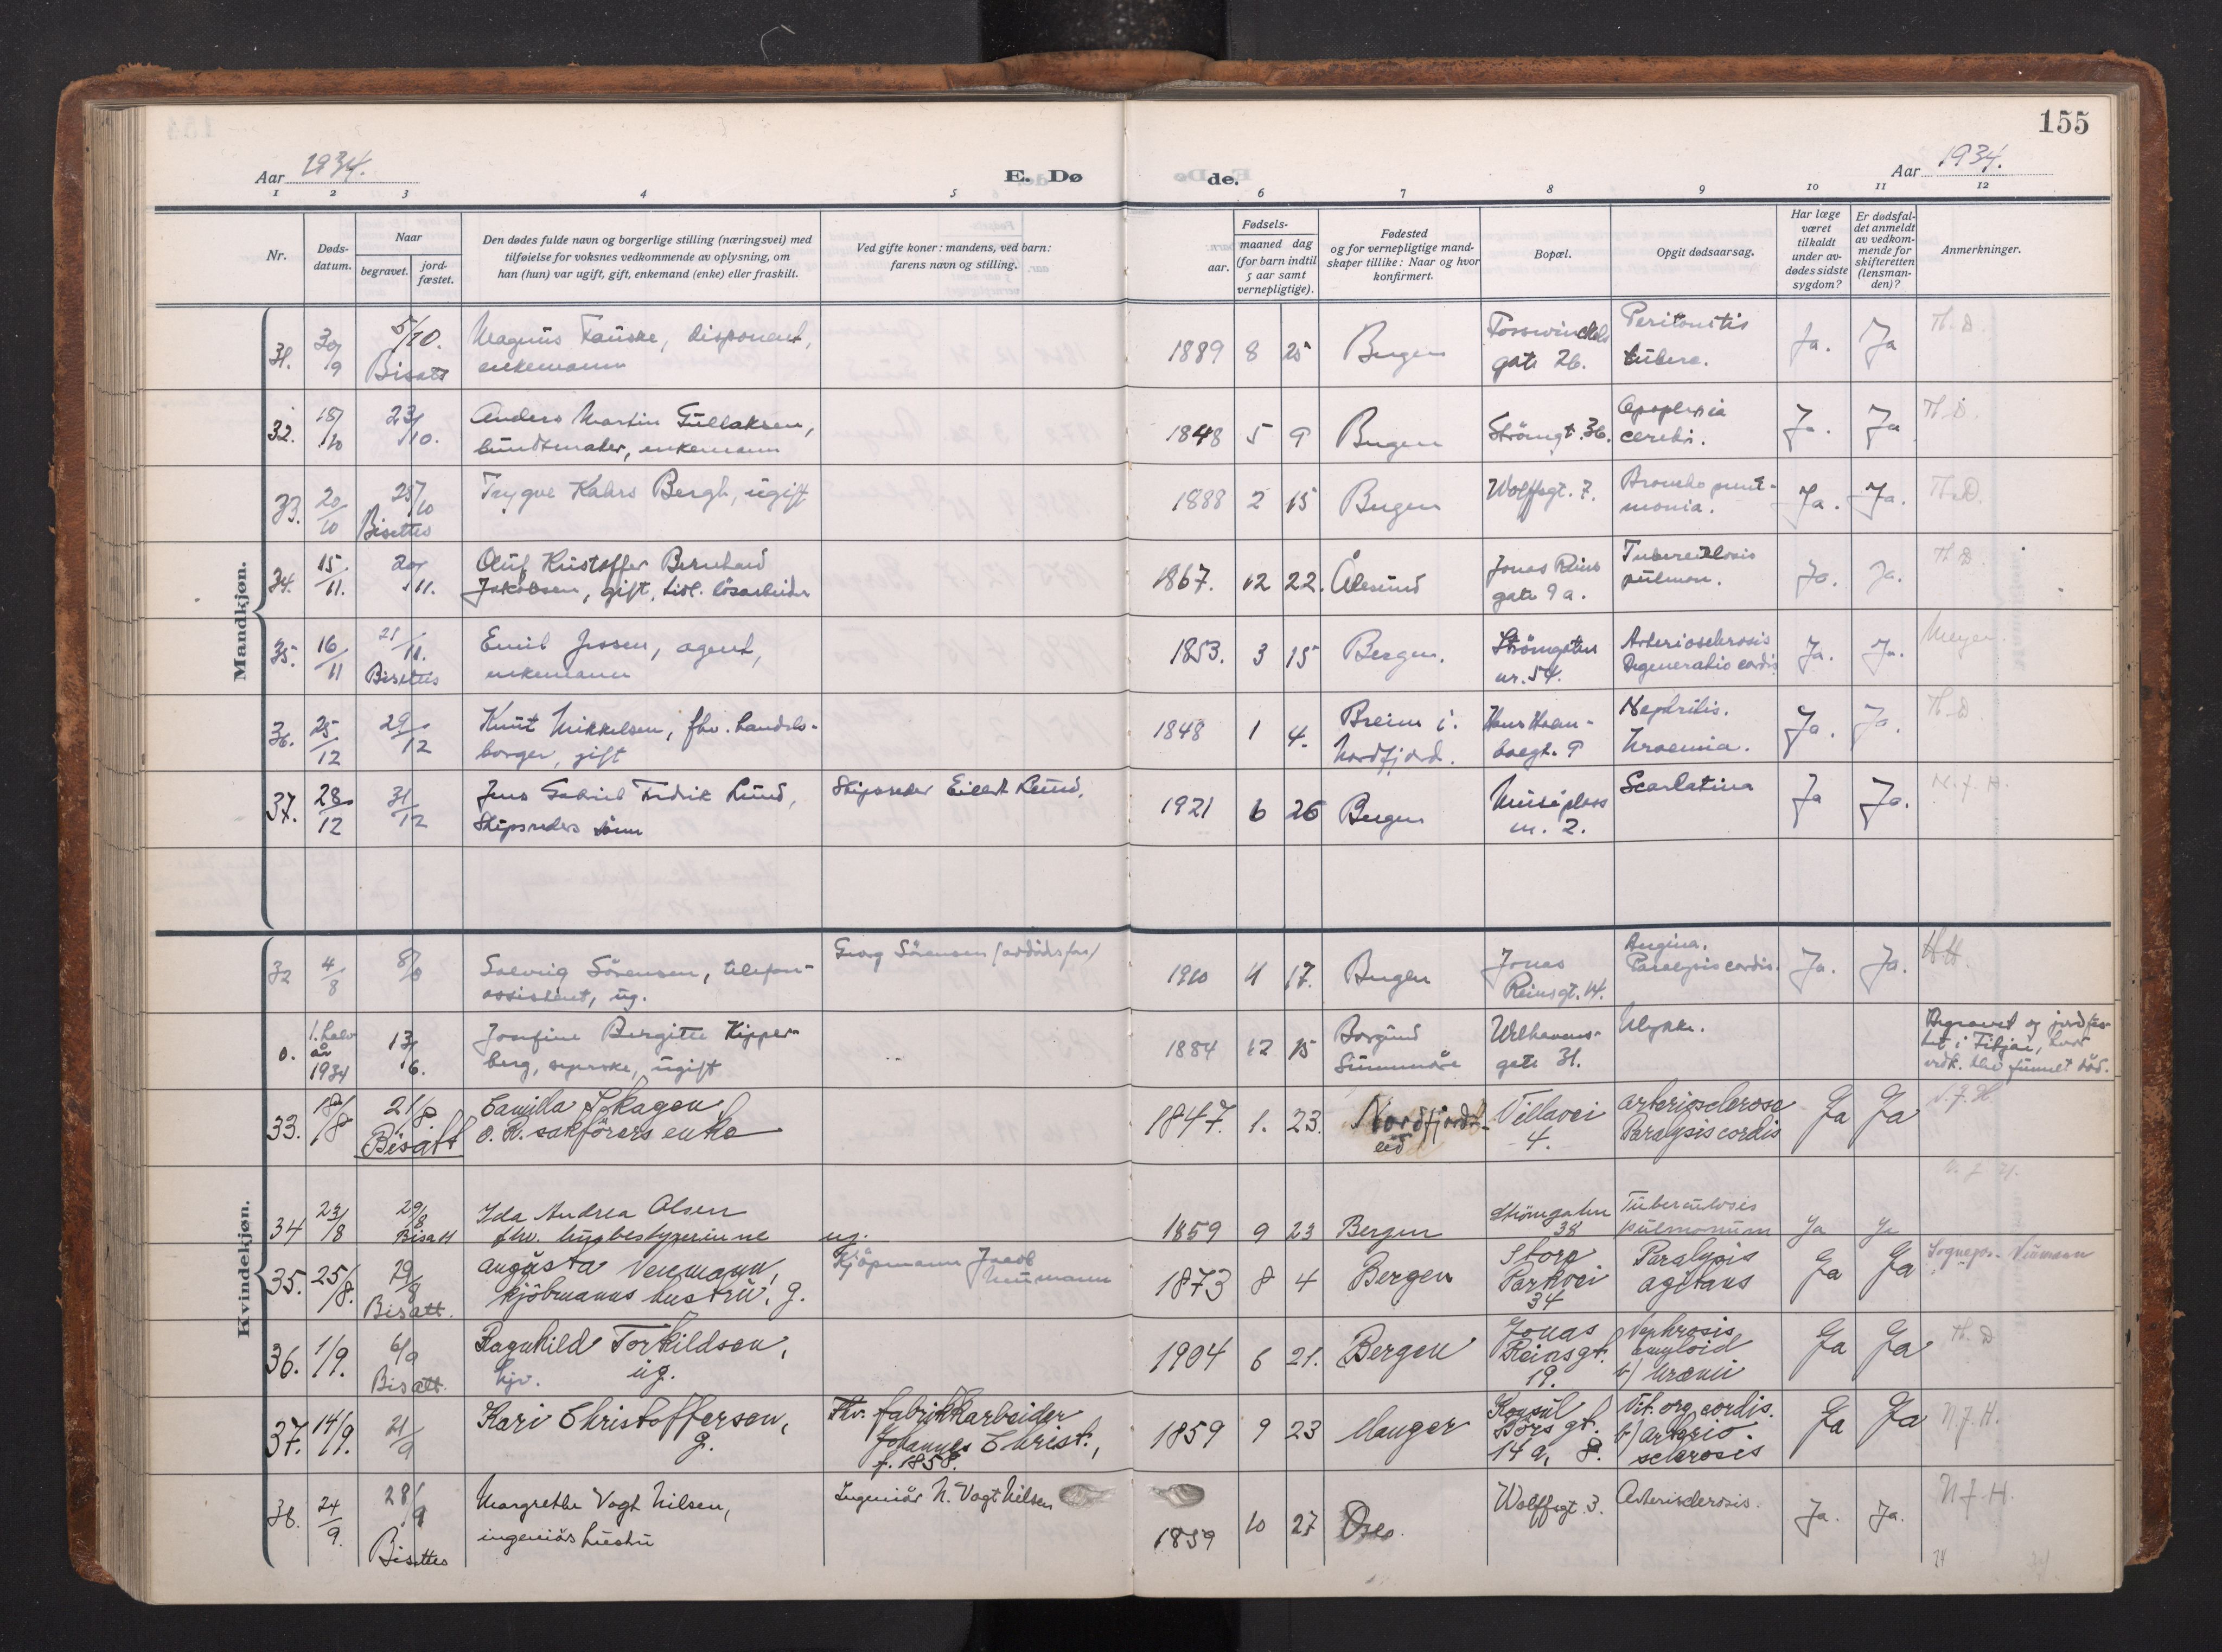 155
Aar 1934.
E. Dø
de.
Aar 1934.
1 2 3 4 5 6 7 8 9 10 11 12
Nr.
Døds-
datum.
Naar
begravet.
jord-
fæstet.
Den dødes fulde navn og borgerlige stilling (næringsvei) med
tilføielse for voksnes vedkommende av oplysning, om
han (hun) var ugift, gift, enkemand (enke) eller fraskilt.
Ved gifte koner: mandens, ved barn:
farens navn og stilling.
Fødsels-
aar.
maaned dag
(for barn indtil
5 aar samt
vernepligtige).
Fødested
og for vernepligtige mand-
skaper tillike: Naar og hvor
konfirmert.
Bopæl.
Opgit dødsaarsag.
Har læge
været
tilkaldt
under av-
dødes sidste
sygdom?
Er dødsfal-
det anmeldt
av vedkom-
mende for
skifteretten
(lensman-
den)?
Anmerkninger.
Mandkjøn.
31. 30/9 5/10. Bisatt
Magnus Fauske, disponent,
enkemann
1889 8 25 Bergen
Fosswinckels
gate 26.
Peritonitis
tuberc.
Ja. Ja Th. D.
32. 18/10 23/10.
Anders Martin Gullaksen,
buntmaker, enkemann
1848 5 9 Bergen Strömgt. 36.
Apoplexia
cerebri.
Ja. Ja Th. D.
33. 20/10 25/10 Bisettes
Trygve Kahrs Bergh, ugift
1888 2 15 Bergen Wolffsgt. 7.
Broncho pneu-
monia.
Ja. Ja. Th. D.
34. 15/11. 20/11.
Oluf Kristoffer Bernhard
Jakobsen, gift, tidl. løsarbeider
1867. 12 22. Ålesund
Jonas Reins
gate 9 a.
Tuberculosis
pulmon.
Ja. Ja. Th. D.
35. 16/11 21/11. Bisettes
Emil Jessen, agent,
enkemann
1853. 3 15 Bergen.
Strömgaten
nr. 54.
Arteriosclerosis
Degeneratio cordis
Ja. Ja. Meyer.
36. 25/12 29/12
Knut Mikkelsen, fhv. handels-
borger, gift
1848 1 4.
Breim i
Nordfjord.
Nephritis.
Uraemia.
Ja. Ja. Th. D
37. 28/12 31/12
Jens Gabriel Fredrik Lund,
Skipsreders sönn
Skipsreder Eilert Lund.
1921 6 26 Bergen
Muséplass
nr. 2.
Scarlatina
Ja Ja. N. J. H.
Kvindekjøn.
32 4/8 8/8
Solveig Sörensen, telefon-
assistent, ug.
Georg Sörensen
1910 4 17. Bergen
Jonas
Reinsgt. 14.
Angina.
Paralysis cordis.
Ja. Ja. HH.
0. 1. halv
år
1934
13/6.
Josefine Bergitte Kipper-
berg, syerske, ugift
1884 12 15
Borgund
Sunnmöre
Welhavens-
gate 31.
Ulykke.
Begravet og jordfes-
tet i Fitjar, hvor
vedk. blev funnet död.
33. 18/8 21/8. Bisatt
Camilla Skagen
O. R. sakförers enke
1847. 1. 23.
Nordfjord-
eid
Villavei
4.
Arteriosclerose
Paralysis cordis
Ja Ja N. J. H.
34 23/8 29/8 Bisatt
Ida Andrea Olsen
fhv. husbestyrerinne ug.
1859 9 23 Bergen
Strömgaten
38
Tuberculosis
pulmonum
Ja Ja
35. 25/8. 29/8 Bisatt.
Augusta Neumann,
kjöbmanns hustru, g.
Kjöpmann Jacob
Neumann
1873 8 4 Bergen
Store
Parkvei
34
Paralysis
agitans
Ja Ja Sognepr. Neumann
36. 1/9. 6/9 Bisatt.
Ragnhild Torkildsen,
hjv. ug.
1904 6 21. Bergen
Jonas
Reinsgt.
19.
Nephrosis
amyloid
b) Uræmi
Ja Ja Th. D
37. 14/9. 21/9
Kari Christoffersen,
g.
Fhv. fabrikkarbeider
Johannes Christ.,
f. 1858.
1859 9 23 Manger
Konsul
Börs gt.
14 a, 8.
Vit. org. cordis.
b) Arterio-
sclerosis
Ja Ja N. J. H.
38. 24/9. 28/9 Bisettes
Margrethe Vogt Nilsen,
ingeniörs hustru
Ingeniör N. Vogt Nilsen
1859 10 27 Oslo.
Wolffsgt. 3. Arteriosclerosis.
Ja. Ja. N. J. H.